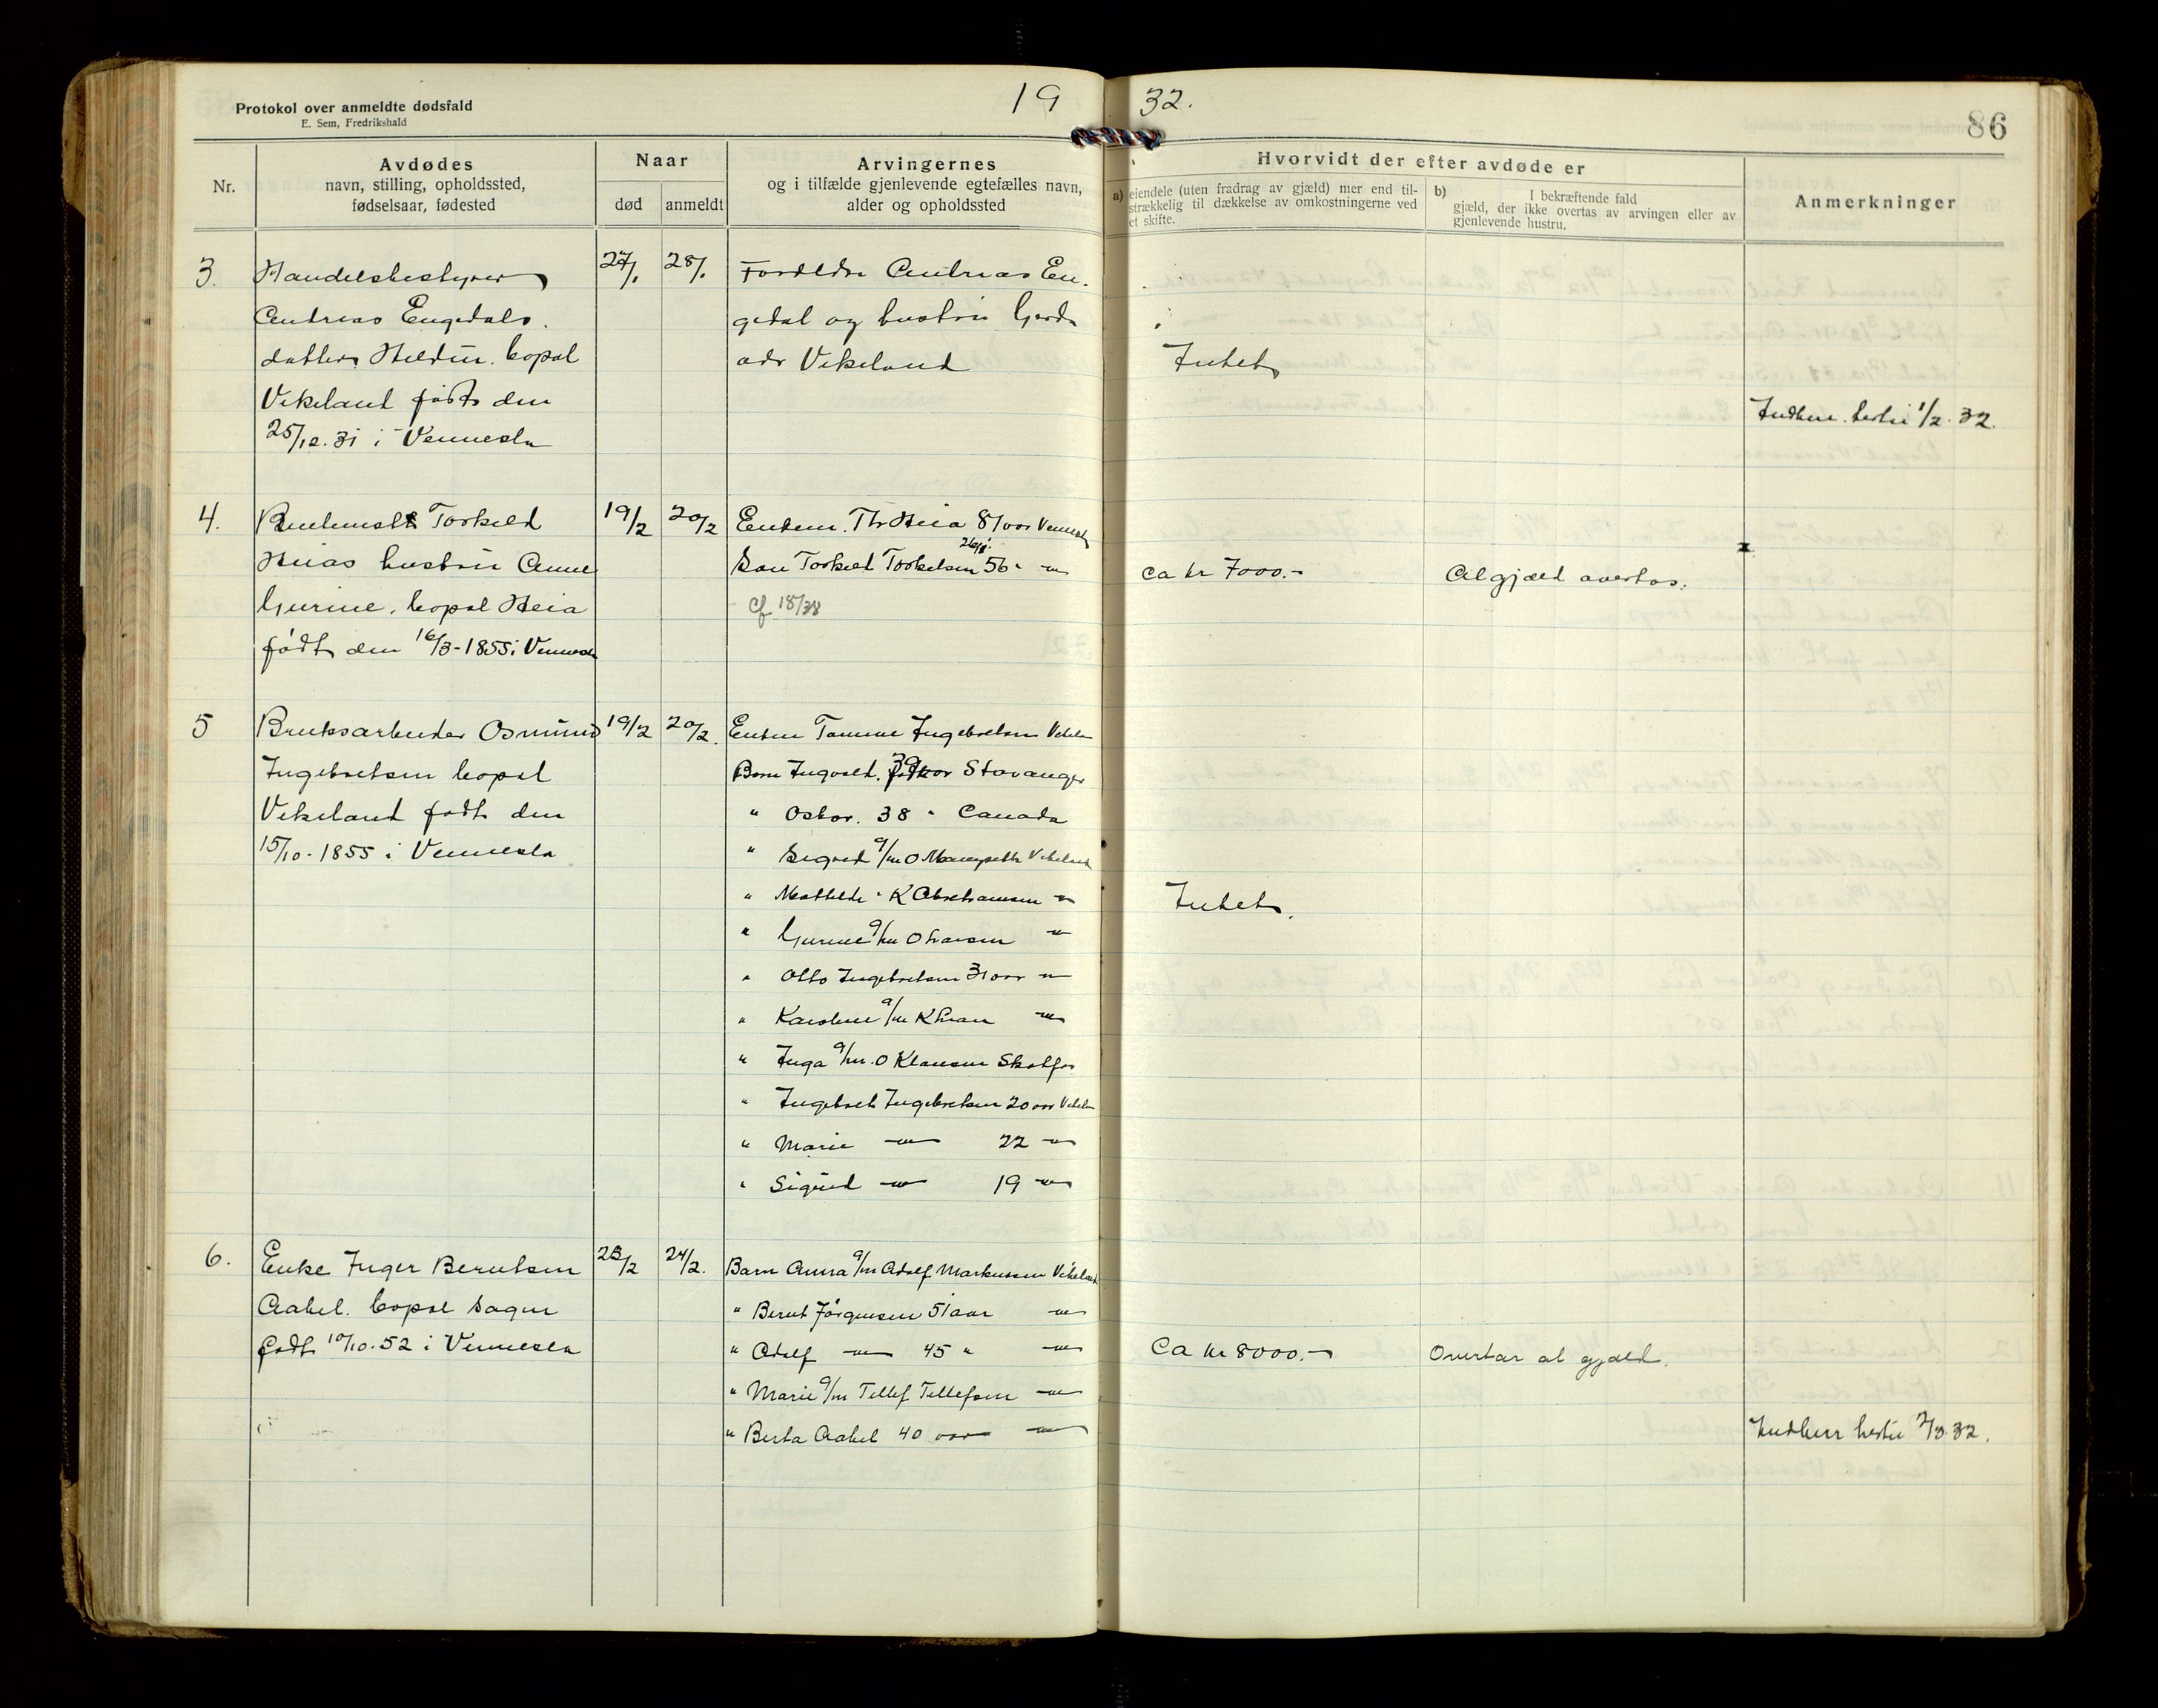 Protokol over anmeldte dødsfald
E. Sem, Fredrikshald
19 32.
86
Nr.
Avdødes
navn, stilling, opholdssted,
fødselsaar, fødested
Naar
død
anmeldt
Arvingernes
og i tilfælde gjenlevende egtefælles navn,
alder og opholdssted
Hvorvidt der efter avdøde er
a) eiendele (uten fradrag av gjæld) mer end til-
strækkelig til dækkelse av omkostningerne ved
et skifte.
b) I bekræftende fald
gjæld, der ikke overtas av arvingen eller av
gjenlevende hustru.
Anmerkninger
3.
Handelsbestyrer
Andreas Engedals
datter, bopæl
Vikeland født den
25/12.31 i Vennesla
27/1
28/1
Foreldre Andreas En-
gedal og hustru Gerda
adr Vikeland
Intet
1/2.32.
4.
Torkild
Heias hustru Anne
Gurine, bopæl Heia
født den 16/3-1855 i Vennesla
19/2
20/2
Enkem. Heia 81 aar Vennesla
Søn Torkild Torkelsen 56 "
cf 18/38
Ca kr 7000.-
Al gjæld overtas.
5
Bruksarbeider Osmund
Ingebretsen bopæl
Vikeland født den
15/10-1855 i Vennesla
19/2
20/2.
Enke Tomine Ingebretsen
Barn Ingvald. 39 aar Stavanger
" Oskar. 38 " Canada
" Sigrid g/m O Vikeland
" Mathilde " K Abrahamsen -"-
" Gurine g/m O Larsen -"-
" Otto Ingebretsen 31 aar -"-
" Karoline g/m K -"-
" Inga g/m. O Klausen
" Ingebret Ingebretsen 20 aar
" Marie -"- 22 -"-
" Sigurd -"- 19 -"-
Intet.
6.
Enke Inger Berntsen
Aabel. bopæl Sagen
født 10/10.52 i Vennesla
23/2
24/2.
Barn Anna g/m Adolf Markussen Vikeland
" Bernt Jörgensen 51 aar -"-
" Adolf -"- 45 " -"-
" Marie g/m Tellef Tellefsen -"-
" Berta Aabel 40 aar -"-
Ca kr 8000.-
Overtar al gjæld.
2/3.32.